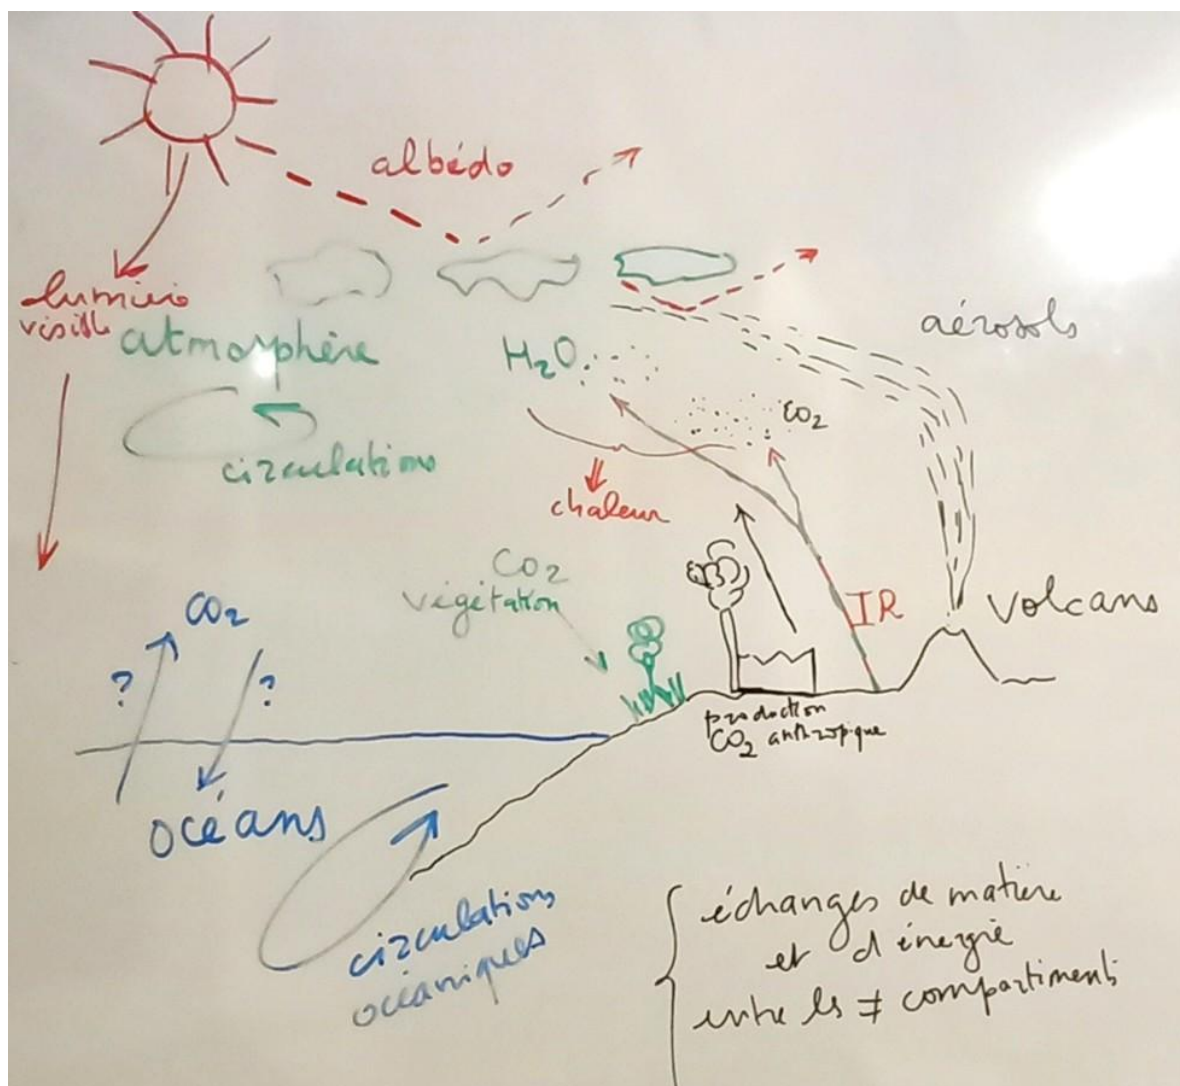 albédo
lumière
visible
atmosphère
H₂O
aérosols
CO₂
circulations
chaleur
CO₂
végétation
IR
volcans
CO₂
?
?
production
CO₂ anthropique
océans
circulations
océaniques
échanges de matière
et d'énergie
entre les ≠ compartiments